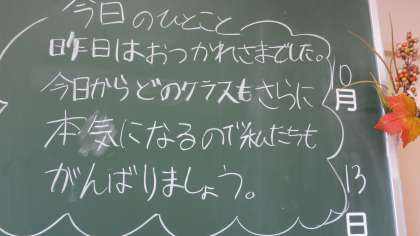 今日のひとこと
昨日はおつかれさまでした。
今日からどのクラスもさらに
本気になるので私たちも
がんばりましょう。
10月
13日